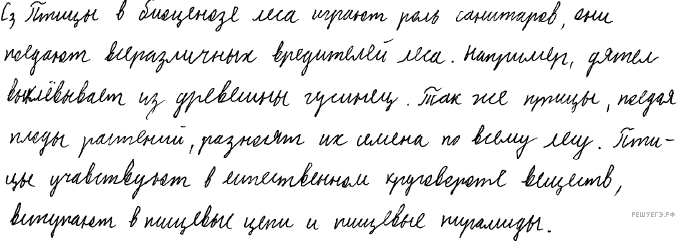 С3 Птицы в биоценозе леса играют роль санитаров, они
поедают всеразличных вредителей леса. Например, дятел
выклёвывает из древешины гусинец. Так же птицы, поедая
плоды растений, разносят их семена по всему лесу. Пти-
цы учавствуют в естественном круговороте веществ,
вступают в пищевые цепи и пищевые пирамиды.
РЕШУЕГЭ.РФ